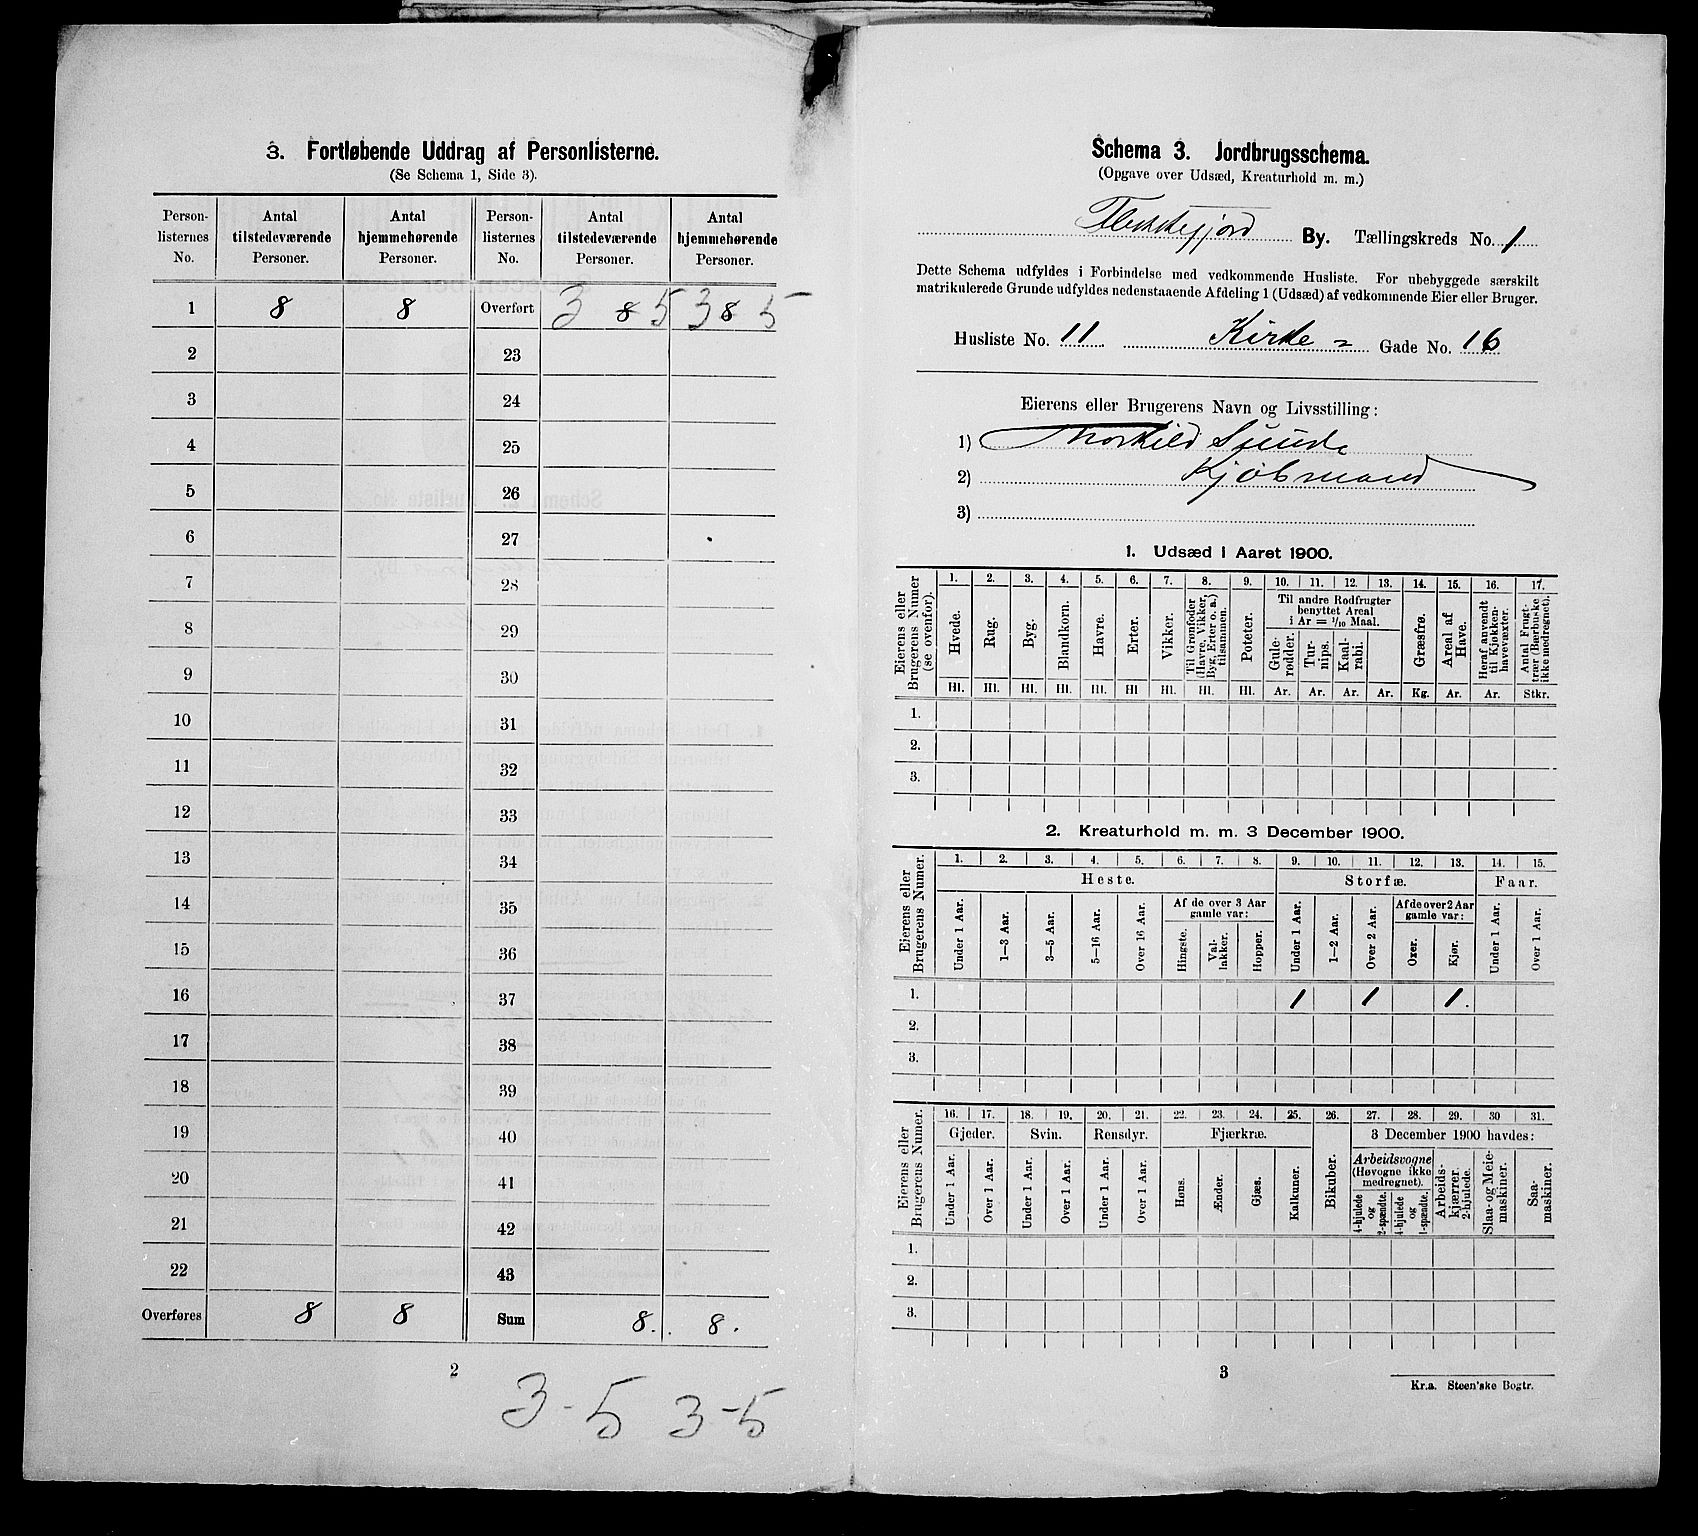 3. Fortløbende Uddrag af Personlisterne.
(Se Schema 1, Side 3).
Person-listernes No. | Antal tilstedeværende Personer. | Antal hjemmehørende Personer. | Person-listernes No. | Antal tilstedeværende Personer. | Antal hjemmehørende Personer.
1 | 8 | 8 | Overført | 3 8 5 | 3 8 5
2 | 23
3 | 24
4 | 25
5 | 26
6 | 27
7 | 28
8 | 29
9 | 30
10 | 31
11 | 32
12 | 33
13 | 34
14 | 35
15 | 36
16 | 37
17 | 38
18 | 39
19 | 40
20 | 41
21 | 42
22 | 43
Overføres | 8 | 8 | Sum | 8. | 8.
2
3-5 3-5
Schema 3. Jordbrugsschema.
(Opgave over Udsæd, Kreaturhold m. m.)
Flekkefjord By. Tællingskreds No. 1
Dette Schema udfyldes i Forbindelse med vedkommende Husliste. For ubebyggede særskilt
matrikulerede Grunde udfyldes nedenstaaende Afdeling 1 (Udsæd) af vedkommende Eier eller Bruger.
Husliste No. 11. Kirke = Gade No. 16
Eierens eller Brugerens Navn og Livsstilling:
1) Thorkild Sunde
2) Kjøbmand
3)
1. Udsæd i Aaret 1900.
Eierens eller Brugerens Numer (se ovenfor).
1. | 2. | 3. | 4. | 5. | 6. | 7. | 8. | 9. | 10. | 11. | 12. | 13. | 14. | 15. | 16. | 17.
Hvede. | Rug. | Byg. | Blandkorn. | Havre. | Erter. | Vikker. | Til Grønfoder (Havre, Vikker, Byg, Erter o. a.) tilsammen. | Poteter. | Til andre Rodfrugter benyttet Areal i Ar = 1/10 Maal. | Gulerødder. | Turnips. | Kaalrabi. | Græsfrø. | Areal af Have. | Heraf anvendt til Kjøkkenhavevæxter. | Antal Frugttrær (Bærbuske ikke medregnet).
Hl. | Hl. | Hl. | Hl. | Hl. | Hl | Hl. | Hl. | Hl. | Ar. | Ar. | Ar. | Ar. | Kg. | Ar. | Ar. | Stkr.
1.
2.
3.
2. Kreaturhold m. m. 3 December 1900.
Eierens eller Brugerens Numer.
1. | 2. | 3. | 4. | 5. | 6. | 7. | 8. | 9. | 10. | 11. | 12. | 13. | 14. | 15.
Heste. | Storfæ. | Faar.
Af de over 3 Aar gamle var: | Af de over 2 Aar gamle var:
Under 1 Aar. | 1—3 Aar. | 3—5 Aar. | 5—16 Aar. | Over 16 Aar. | Hingste. | Vallakker. | Hopper. | Under 1 Aar. | 1—2 Aar. | Over 2 Aar. | Oxer. | Kjør. | Under 1 Aar. | Over 1 Aar.
1. | 1 | 1 | 1.
2.
3.
Eierens eller Brugerens Numer.
16. | 17. | 18. | 19. | 20. | 21. | 22. | 23. | 24. | 25. | 26. | 27. | 28. | 29. | 30 | 31.
Gjeder. | Svin. | Rensdyr. | Fjærkræ. | Bikuber. | 3 December 1900 havdes:
Arbeidsvogne (Høvogne ikke medregnet).
Under 1 Aar. | Over 1 Aar. | Under 1 Aar. | Over 1 Aar. | Under 1 Aar. | Over 1 Aar. | Høns. | Ænder. | Gjæs. | Kalkuner. | 4-hjulede og 2-spændte. | 4-hjulede og 1-spændte. | Arbeids-kjærrer. 2-hjulede. | Slaa- og Meie-maskiner. | Saa-maskiner.
1.
2.
3.
3
Kr.a. Steen'ske Bogtr.